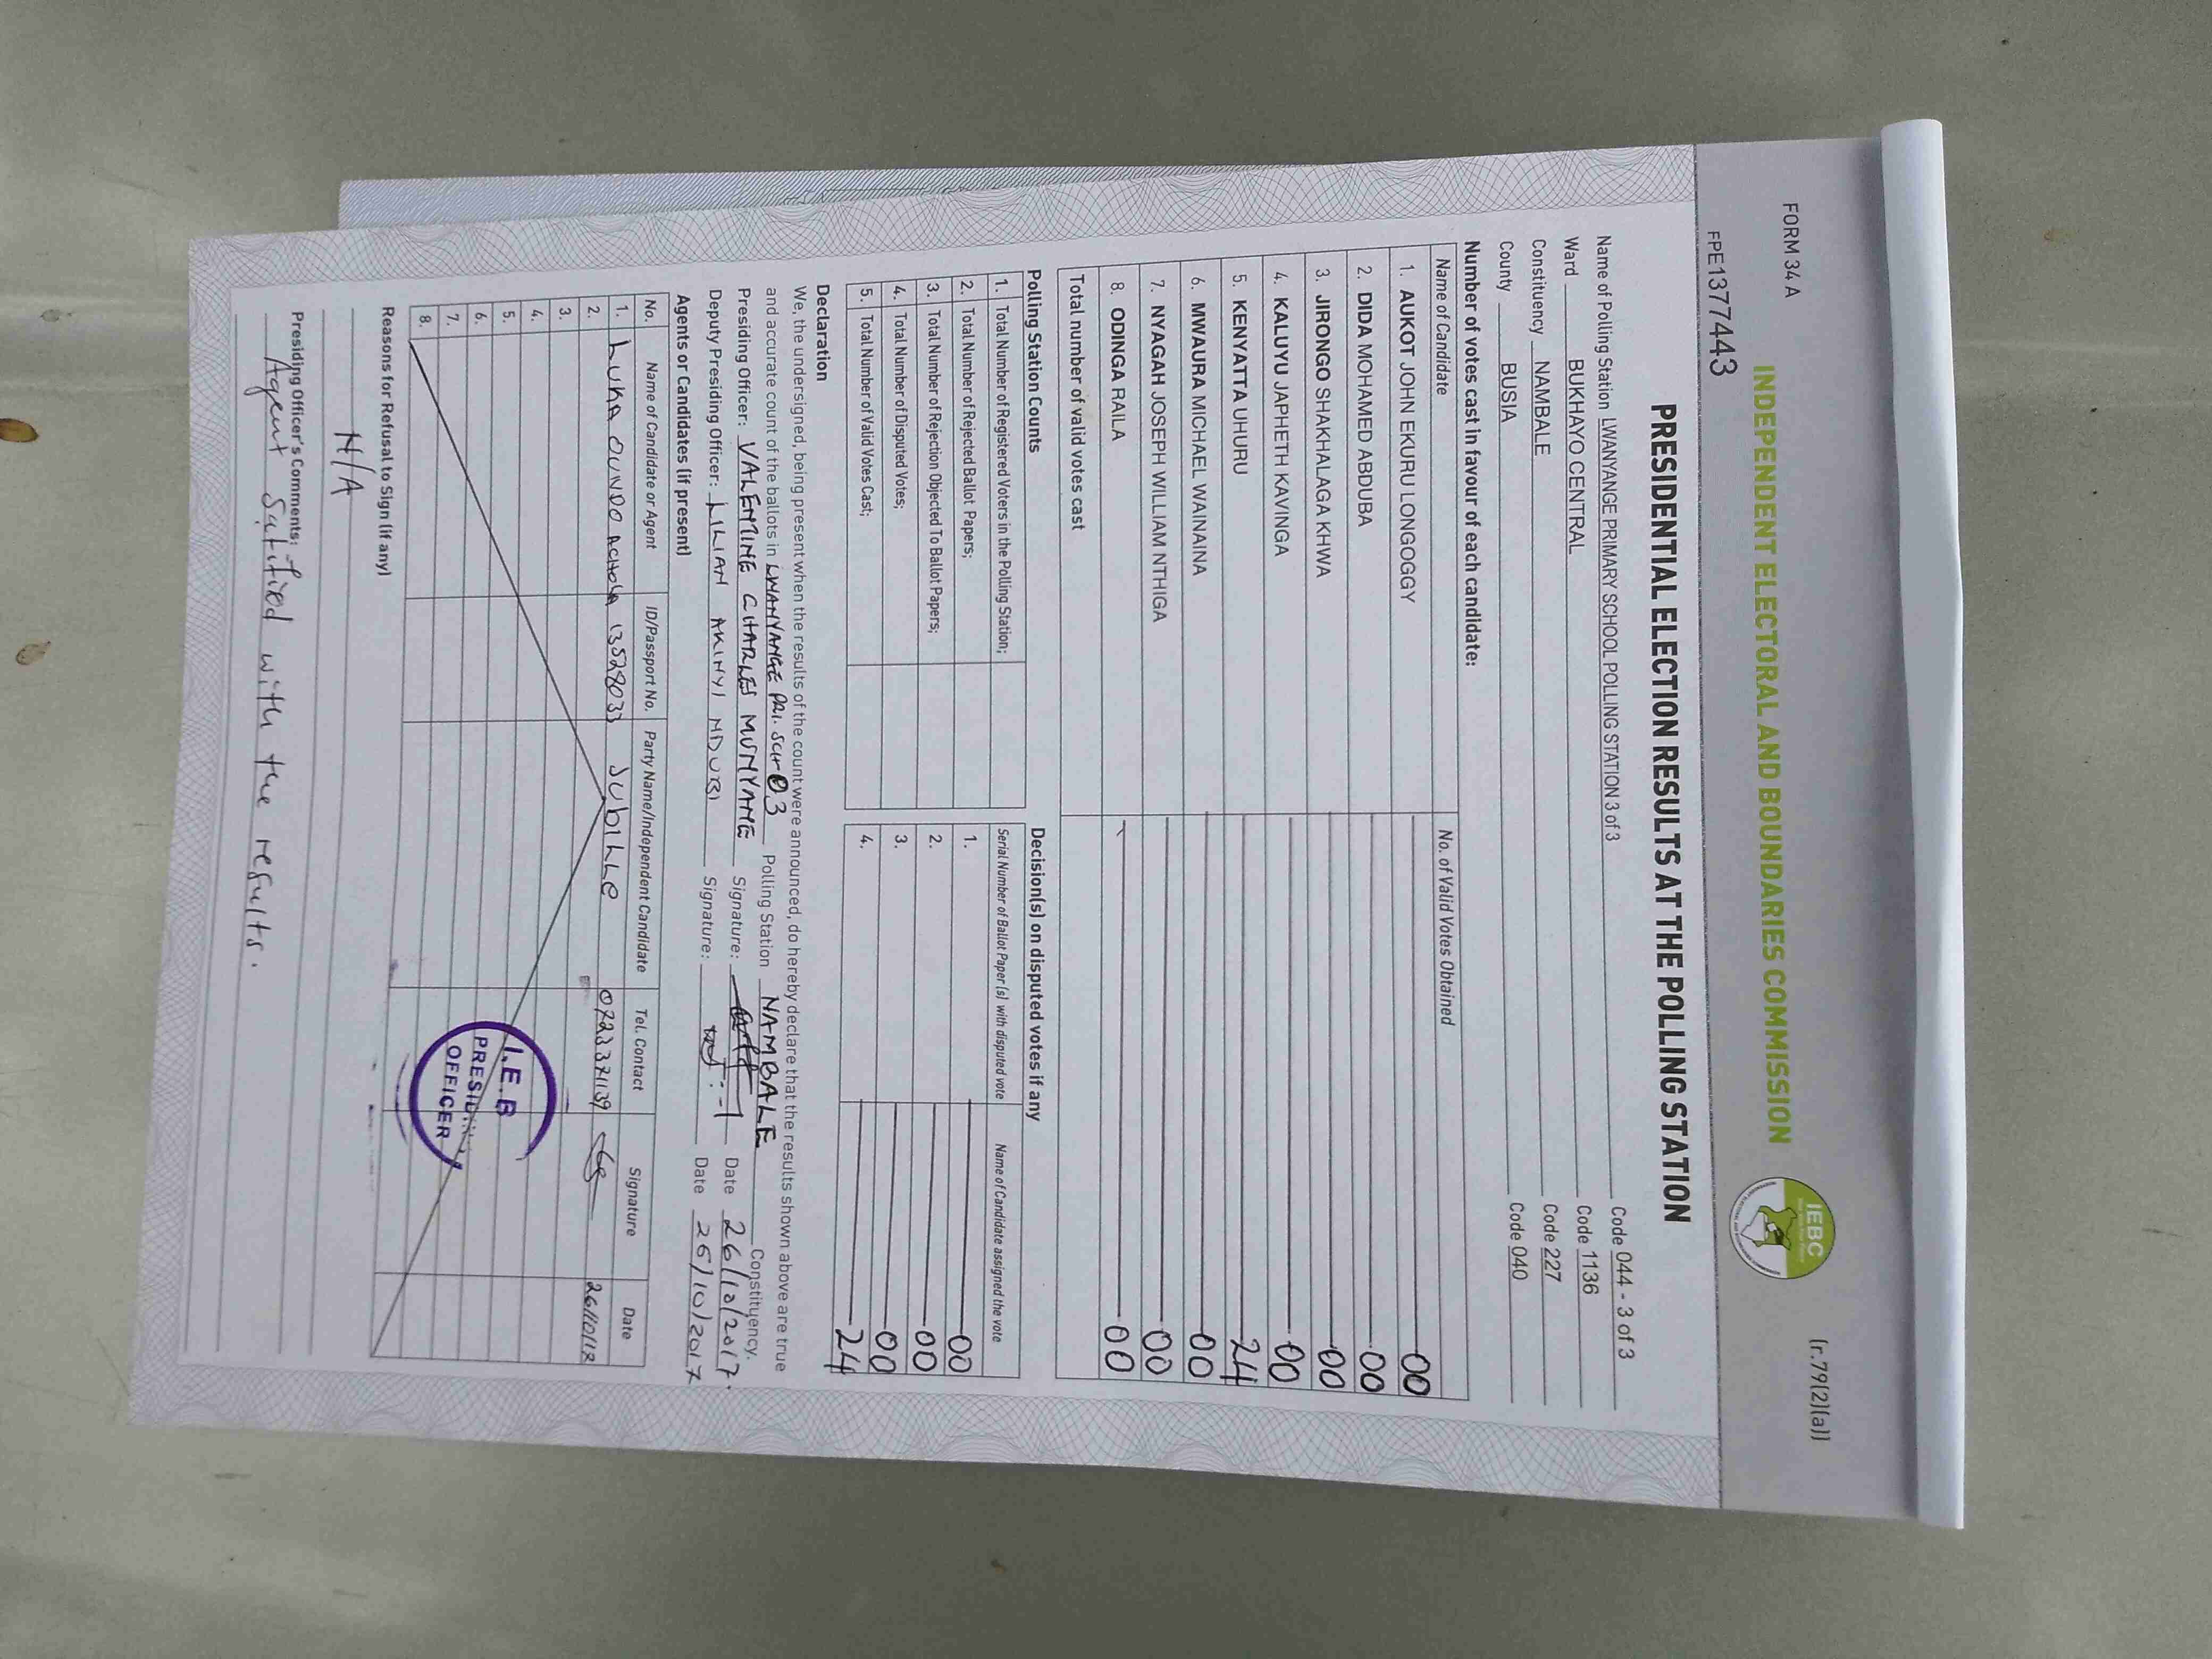 FORM 34 A
(r.79(2)(a))
INDEPENDENT ELECTORAL AND BOUNDARIES COMMISSION
IEBC
FPE1377443
PRESIDENTIAL ELECTION RESULTS AT THE POLLING STATION
Name of Polling Station LWANYANGE PRIMARY SCHOOL POLLING STATION 3 of 3 Code 044 - 3 of 3
Ward BUKHAYO CENTRAL Code 1136
Constituency NAMBALE Code 227
County BUSIA Code 040
Number of votes cast in favour of each candidate:
Name of Candidate No. of Valid Votes Obtained
1. AUKOT JOHN EKURU LONGOGGY 00
2. DIDA MOHAMED ABDUBA 00
3. JIRONGO SHAKHALAGA KHWA 00
4. KALUYU JAPHETH KAVINGA 00
5. KENYATTA UHURU 24
6. MWAURA MICHAEL WAINAINA 00
7. NYAGAH JOSEPH WILLIAM NTHIGA 00
8. ODINGA RAILA 00
Total number of valid votes cast
Polling Station Counts Decision(s) on disputed votes if any
1. Total Number of Registered Voters in the Polling Station; Serial Number of Ballot Paper(s) with disputed vote Name of Candidate assigned the vote
2. Total Number of Rejected Ballot Papers; 1. 00
3. Total Number of Rejection Objected To Ballot Papers; 2. 00
4. Total Number of Disputed Votes; 3. 00
5. Total Number of Valid Votes Cast; 4. 24
Declaration
We, the undersigned, being present when the results of the count were announced, do hereby declare that the results shown above are true
and accurate count of the ballots in LWANYANGE PRI. SCH 03 Polling Station NAMBALE Constituency.
Presiding Officer: VALENTINE CHARLES MUNYANE Signature: Date 26/10/2017.
Deputy Presiding Officer: LILIAN AKINYI NDUBI Signature: Date 26/10/2017
Agents or Candidates (if present)
No. Name of Candidate or Agent ID/Passport No. Party Name/Independent Candidate Tel. Contact Signature Date
1. LUKA OUNDO 13528033 Jubilee 07223371139 26/10/17
2.
3.
4.
5.
6.
7.
8.
I.E.B
PRESID
OFFICER
Reasons for Refusal to Sign (if any)
N/A
Presiding Officer's Comments:
Agent Satified with the results.